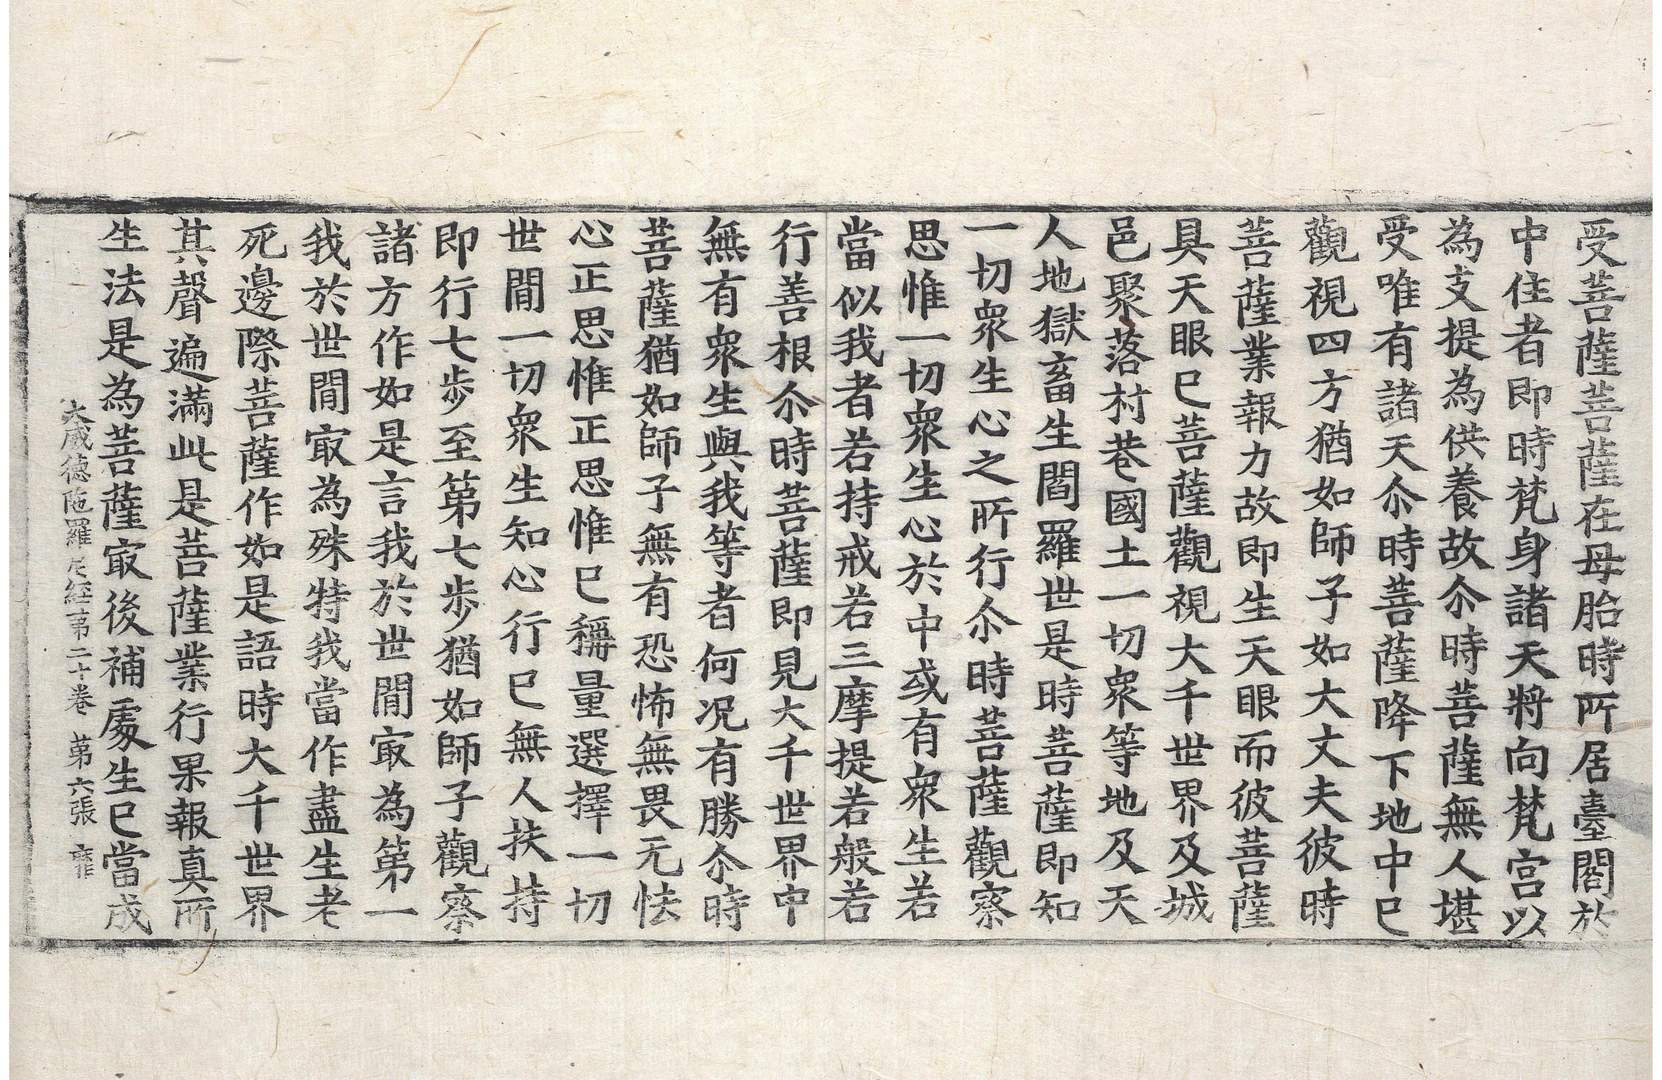 受菩薩菩薩在母胎時所居臺閣於
中住者即時梵身諸天將向梵宮以
為支提為供養故尒時菩薩無人堪
受唯有諸天尒時菩薩降下地中已
觀視四方猶如師子如大丈夫彼時
菩薩業報力故即生天眼而彼菩薩
具天眼已菩薩觀視大千世界及城
邑聚落村巷國土一切衆等地及天
人地獄畜生閻羅世是時菩薩即知
一切衆生心之所行尒時菩薩觀察
思惟一切衆生心於中或有衆生若
當似我者若持戒若三摩提若般若
行善根尒時菩薩即見大千世界中
無有衆生與我等者何況有勝尒時
菩薩猶如師子無有恐怖無畏无怯
心正思惟正思惟已稱量選擇一切
世間一切衆生知心行已無人扶持
即行七步至第七步猶如師子觀察
諸方作如是言我於世間㝡為第一
我於世間㝡為殊特我當作盡生老
死邊際菩薩作如是語時大千世界
其聲遍滿此是菩薩業行果報真所
生法是為菩薩㝡後補處生已當成
大威德陁羅尼経苐二十卷 苐六張 靡